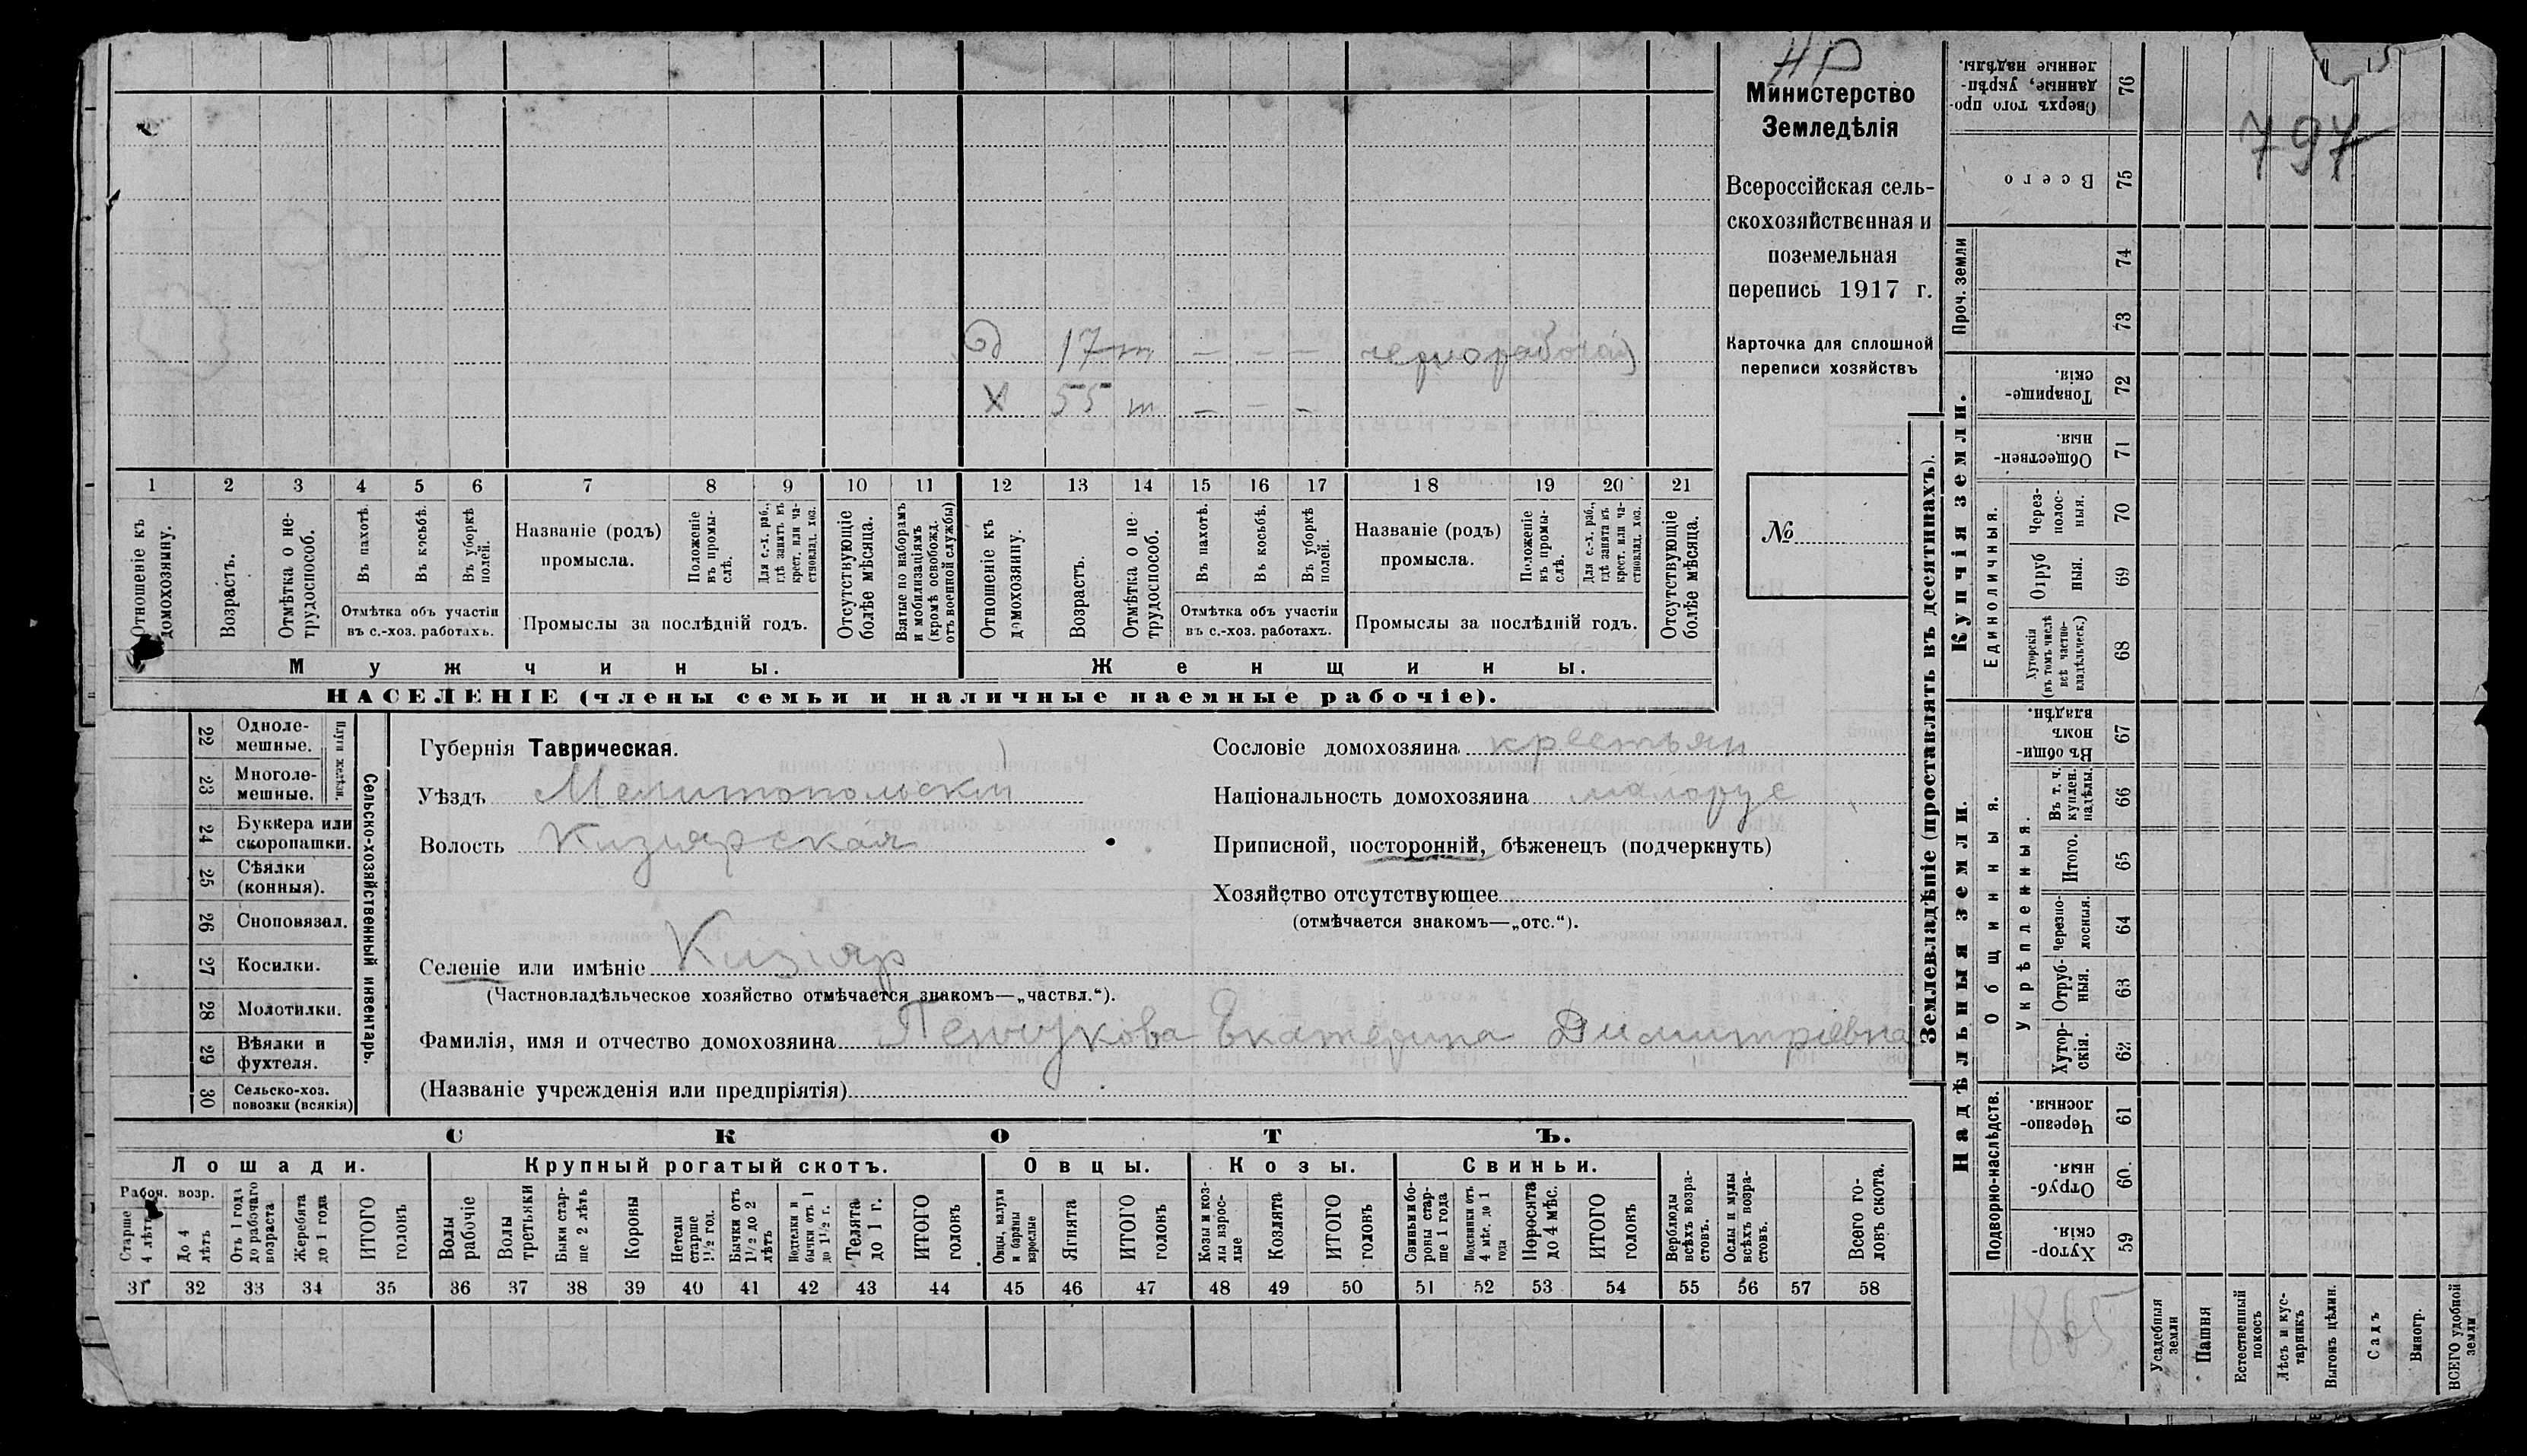 НР
Министерство
Земледѣлія
Всероссійская сель-
скохозяйственная и
поземельная
перепись 1917 г.
Карточка для сплошной
переписи хозяйствъ
№
797
17 — — — чернорабочая
х 55 — — —
1 2 3 4 5 6 7 8 9 10 11 12 13 14 15 16 17 18 19 20 21
Отношеніе къ домохозяину.
Возрастъ.
Отмѣтка о не-трудоспособ.
Въ пахотѣ.
Въ косьбѣ.
Въ уборкѣ полей.
Отмѣтка объ участіи
въ с.-хоз. работахъ.
Названіе (родъ)
промысла.
Положеніе въ промы-слѣ.
Для с.-х. раб., гдѣ занятъ въ крест. или ча-стновлад. хоз.
Промыслы за послѣдній годъ.
Отсутствующіе болѣе мѣсяца.
Взятые по наборамъ и мобилизаціямъ (кромѣ освобожд. отъ военной службы)
Отношеніе къ домохозяину.
Возрастъ.
Отмѣтка о не-трудоспособ.
Въ пахотѣ.
Въ косьбѣ.
Въ уборкѣ полей.
Отмѣтка объ участіи
въ с.-хоз. работахъ.
Названіе (родъ)
промысла.
Положеніе въ промы-слѣ.
Для с.-х. раб., гдѣ занята въ крест. или ча-стновлад. хоз.
Промыслы за послѣдній годъ.
Отсутствующіе болѣе мѣсяца.
Мужчины. Женщины.
НАСЕЛЕНІЕ (члены семьи и наличные наемные рабочіе).
Сельско-хозяйственный инвентарь.
Плуги желѣзн.
22 Одноле-мешные.
23 Многоле-мешные.
24 Буккера или скоропашки.
25 Сѣялки (конныя).
26 Сноповязал.
27 Косилки.
28 Молотилки.
29 Вѣялки и фухтеля.
30 Сельско-хоз. повозки (всякія)
Губернія Таврическая.
Уѣздъ Мелитопольскій
Волость Кизіярская
Сословіе домохозяина крестьян
Національность домохозяина малорус
Приписной, посторонній, бѣженецъ (подчеркнуть)
Хозяйство отсутствующее
(отмѣчается знакомъ—„отс.“).
Селеніе или имѣніе Кизіяр
(Частновладѣльческое хозяйство отмѣчается знакомъ—„частвл.“).
Фамилія, имя и отчество домохозяина Екатерина Димитріевна
(Названіе учрежденія или предпріятія)
СКОТЪ.
Лошади. Крупный рогатый скотъ. Овцы. Козы. Свиньи.
Рабоч. возр.
Старше 4 лѣтъ
До 4 лѣтъ
Отъ 1 года до рабочаго возраста
Жеребята до 1 года
ИТОГО головъ
Волы рабочіе
Волы третьяки
Быки стар-ше 2 лѣтъ
Коровы
Нетели старше 1½ год.
Бычки отъ 1½ до 2 лѣтъ
Подтелки и бычки отъ 1 до 1½ г.
Телята до 1 г.
ИТОГО головъ
Овцы, валухи и бараны взрослые
Ягнята
ИТОГО головъ
Козы и коз-лы взрос-лые
Козлята
ИТОГО головъ
Свиньи и бо-ровы стар-ше 1 года
Подсвинки отъ 4 мѣс. до 1 года
Поросята до 4 мѣс.
ИТОГО головъ
Верблюды всѣхъ возра-стовъ.
Ослы и мулы всѣхъ возра-стовъ.
Всего го-ловъ скота.
31 32 33 34 35 36 37 38 39 40 41 42 43 44 45 46 47 48 49 50 51 52 53 54 55 56 57 58
Землевладѣніе (проставлять въ десятинахъ).
Сверхъ того про-данные, укрѣп-ленные надѣлы. 76
Всего 75
Проч. земли
74
73
Купчія земли.
Товарище-скія. 72
Обществен-ныя. 71
Единоличныя.
Через-полос-ныя. 70
Отруб ныя. 69
Хуторскія (въ томъ числѣ всѣ частно-владѣльческ.) 68
Надѣльныя земли.
Общинныя.
Въ общи-номъ владѣн. 67
Укрѣпленныя.
Въ т. ч. куплен. надѣлы. 66
Итого. 65
Черезпо-лосныя. 64
Отруб-ныя. 63
Хутор-скія. 62
Подворно-наслѣдств.
Черезпо-лосныя. 61
Отруб-ныя. 60.
Хутор-скія. 59
1865
Усадебныя земли
Пашня
Естественный покосъ
Лѣсъ и кус-тарникъ
Выгонъ цѣлин.
Садъ
Виногр.
ВСЕГО удобной земли